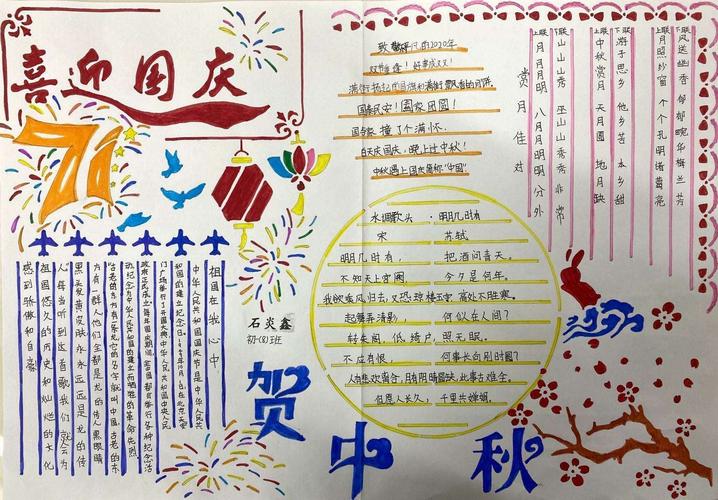 喜迎国庆
71
祖国在我心中
中华人民共和国国庆节是中华人民共
和国的建立纪念日。1949年10月1日,在北京天安
门广场举行了开国大典,中华人民共和国中央人民
政府正式成立。每年国庆期间,全国都会举行各种纪念活
动,纪念为中华人民共和国的建立而牺牲的革命先烈。
古老的东方有一条龙,它的名字就叫中国,古老的东
方有一群人,他们全都是龙的传人,黑眼睛
黑头发黄皮肤,永永远远是龙的传
人。每当听到这首歌,我们就会为
祖国悠久的历史和灿烂的文化
感到骄傲和自豪
石炎鑫
初一(8)班
贺中秋
的2020年
双节重逢!好事成双!
国泰民安!阖家团圆!
国与家,撞了个满怀.
白天庆国庆,晚上过中秋!
中秋遇上国庆简称"中国"
水调歌头·明月几时有
宋 苏轼
明月几时有, 把酒问青天。
不知天上宫阙, 今夕是何年。
我欲乘风归去,又恐琼楼玉宇,高处不胜寒。
起舞弄清影, 何似在人间?
转朱阁,低绮户,照无眠。
不应有恨, 何事长向别时圆?
人有悲欢离合,月有阴晴圆缺,此事古难全。
但愿人长久, 千里共婵娟。
上联 风送幽香 郁郁晚华梅兰芳
下联 月照纱窗 个个孔明诸葛亮
上联 游子思乡 他乡苦 本乡甜
下联 中秋赏月 天月圆 地月缺
上联 山山秀 巫山山秀秀非常
下联 月月明 八月月明明分外
赏月佳对